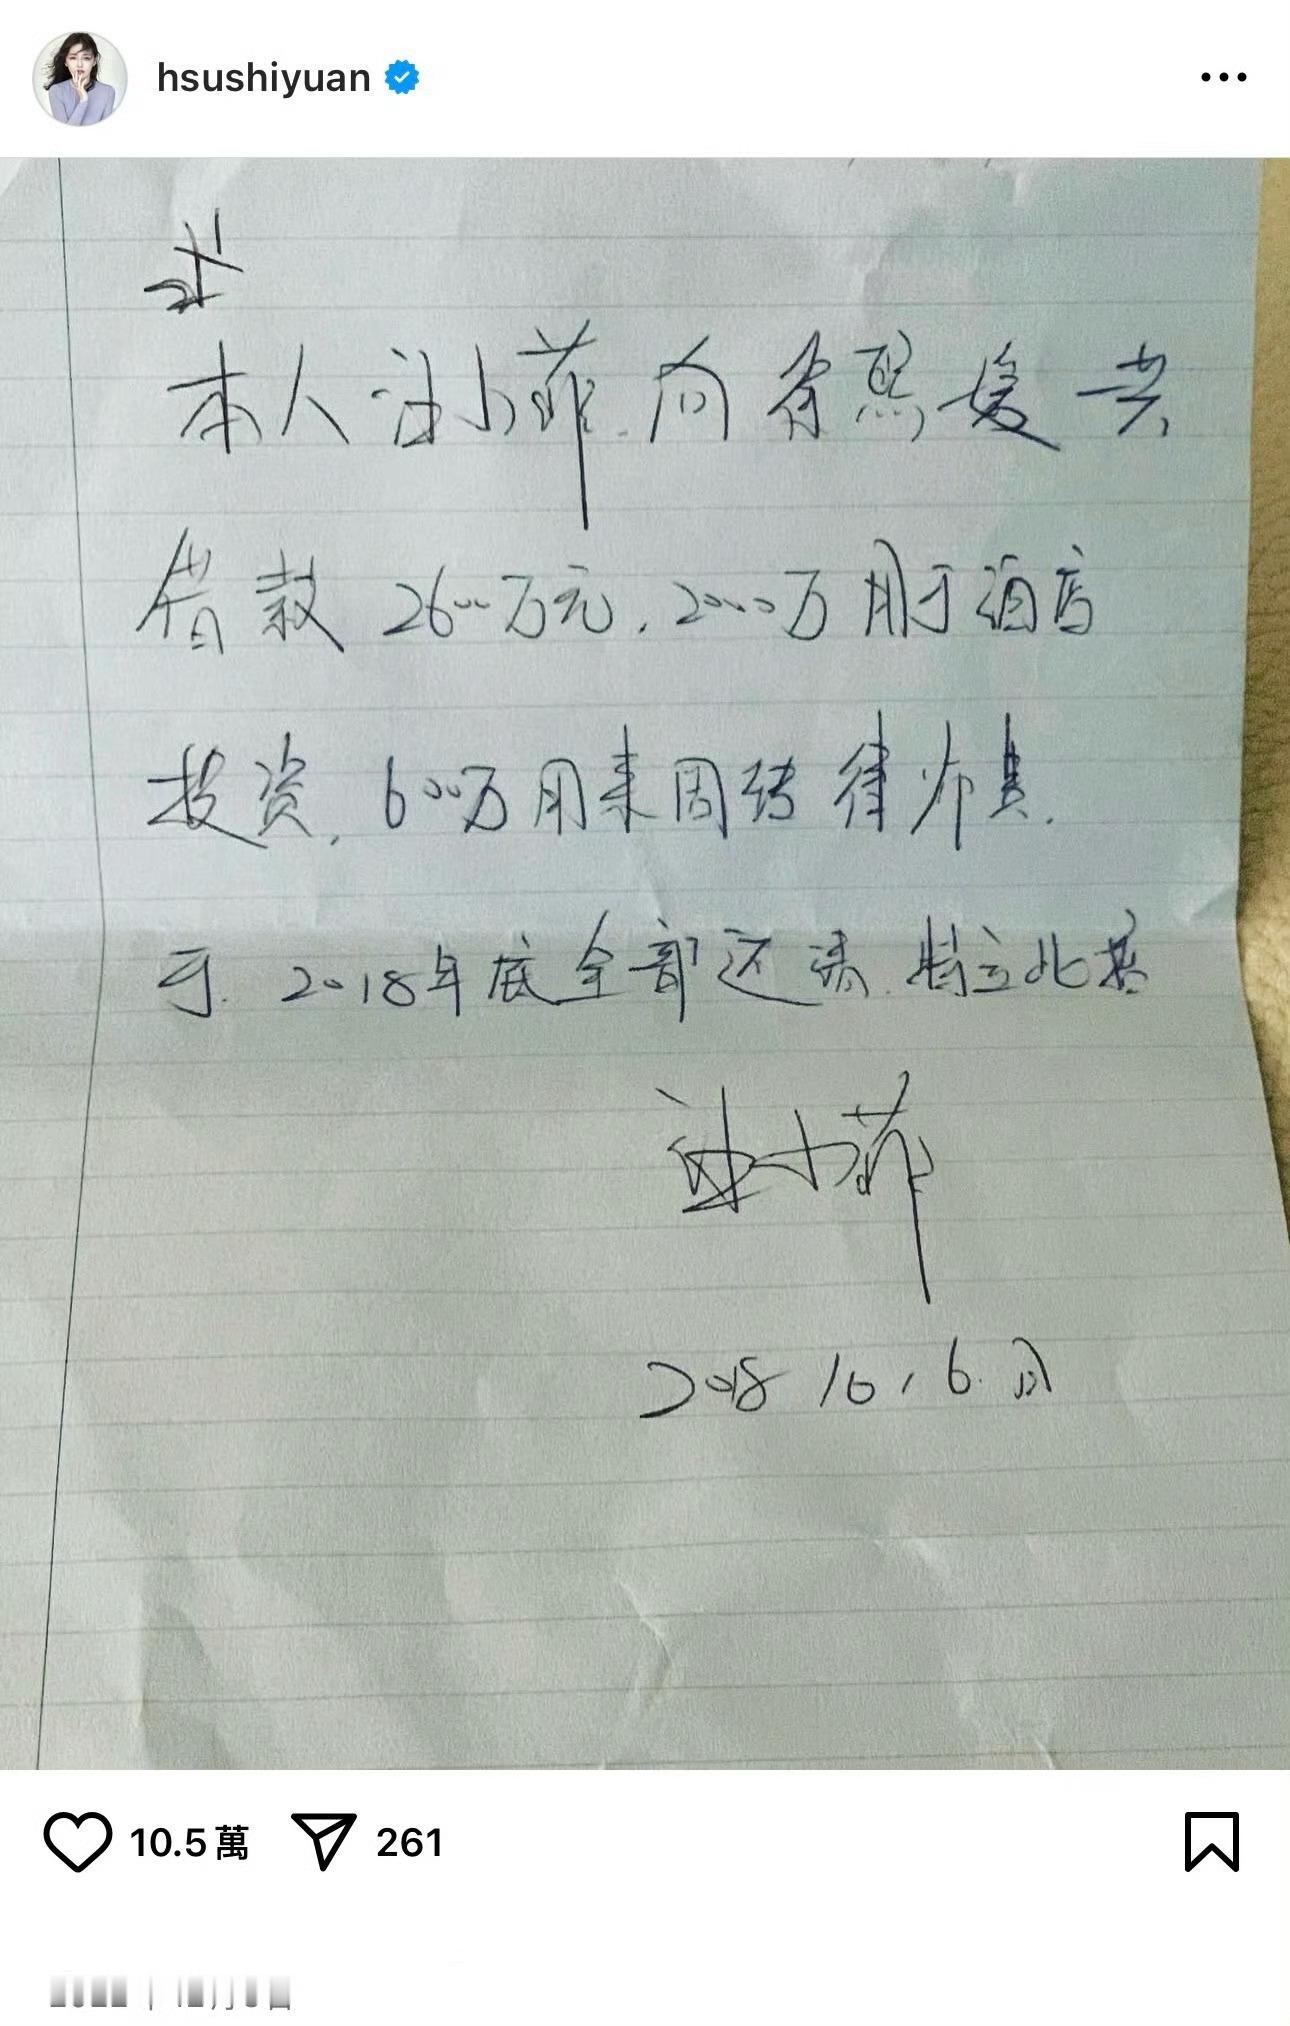 hsushiyuan
本人汪小菲.向徐熙媛共
借款2600万元.2000万用于酒店
投资.600万用来周转律师费.
于.2018年底全部还清.特立此据
汪小菲
2018 10,6.日
10.5萬 261